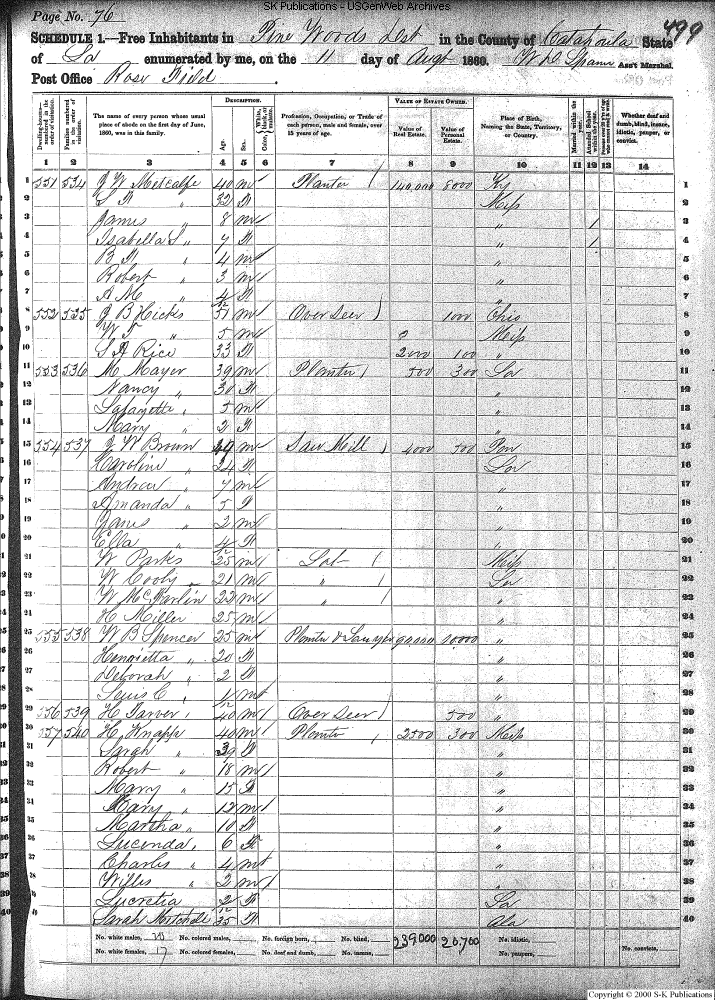 SK Publications - USGenWeb Archives
Page No. 76
499
SCHEDULE 1.—Free Inhabitants in Pine Woods Dist in the County of Catahoula State
of La enumerated by me, on the 11 day of Augt 1860. Ass't Marshal.
Post Office Rose Field.
DESCRIPTION. VALUE OF ESTATE OWNED.
Dwelling-houses—numbered in the order of visitation. Families numbered in the order of visitation. The name of every person whose usual place of abode on the first day of June, 1860, was in this family. Age. Sex. Color, Profession, Occupation, or Trade of each person, male and female, over 15 years of age. Value of Real Estate. Value of Personal Estate. Place of Birth, Naming the State, Territory, or Country. Married within the year. Attended School within the year. Whether deaf and dumb, blind, insane, idiotic, pauper, or convict.
1 2 3 4 5 6 7 8 9 10 11 12 13 14
1 551 534 J W Metcalfe 40 m / Planter 140,000 8000 Ky 1
2 " 32 f Miss 2
3 James " 8 m / " 1 3
4 Isabella S " 7 f " 1 4
5 " 4 m / " 5
6 Robert " 3 m / " 6
7 A M " 4/12 f " 7
8 552 535 J B Hicks 51 m / Over Seer 1000 Ohio 8
9 W F " 5 m / Miss 9
10 S A Rice 33 f 2000 100 " 10
11 553 536 M Mayer 39 m / Planter 500 300 La 11
12 Nancy " 30 f " 12
13 Lafayette " 5 m / " 13
14 Mary " 2 f " 14
15 554 537 J W Brown 49 m / Saw Mill 4000 500 Pen 15
16 Caroline " 24 f La 16
17 Andrew " 7 m / " 17
18 Amanda " 5 f " 18
19 James " 2 m / " 19
20 Ella " 4/12 f " 20
21 W Parks 25 m / Lab Miss 21
22 W Cooby 21 m / " La 22
23 W McFarlin 22 m / " " 23
24 H Miller 25 m / " 24
25 555 538 W B Spencer 25 m / Planter & Lawyer 90,000 10000 " 25
26 Henrietta " 20 f " 26
27 Deborah " 2 f " 27
28 Lewis C " 1/12 m / " 28
29 556 539 H Tarver 40 m / Over Seer 500 " 29
30 557 540 H Knapp 40 m / Planter 2500 300 Miss 30
31 Sarah " 39 f " 31
32 Robert " 18 m / " 32
33 Mary " 15 f " 33
34 Harry " 12 m / " 34
35 Martha " 10 f " 35
36 Lucenda " 6 f " 36
37 Charles " 4 m / " 37
38 Willis " 2 m / " 38
39 Lucretia 2/12 f La 39
40 Sarah Mitchell 35 f Ala 40
No. white males, No. colored males, No. foreign born, No. blind, 239000 20,700 No. idiotic,
No. white females, 17 No. colored females, No. deaf and dumb, No. insane, No. paupers, No. convicts,
Copyright © 2000 S-K Publications